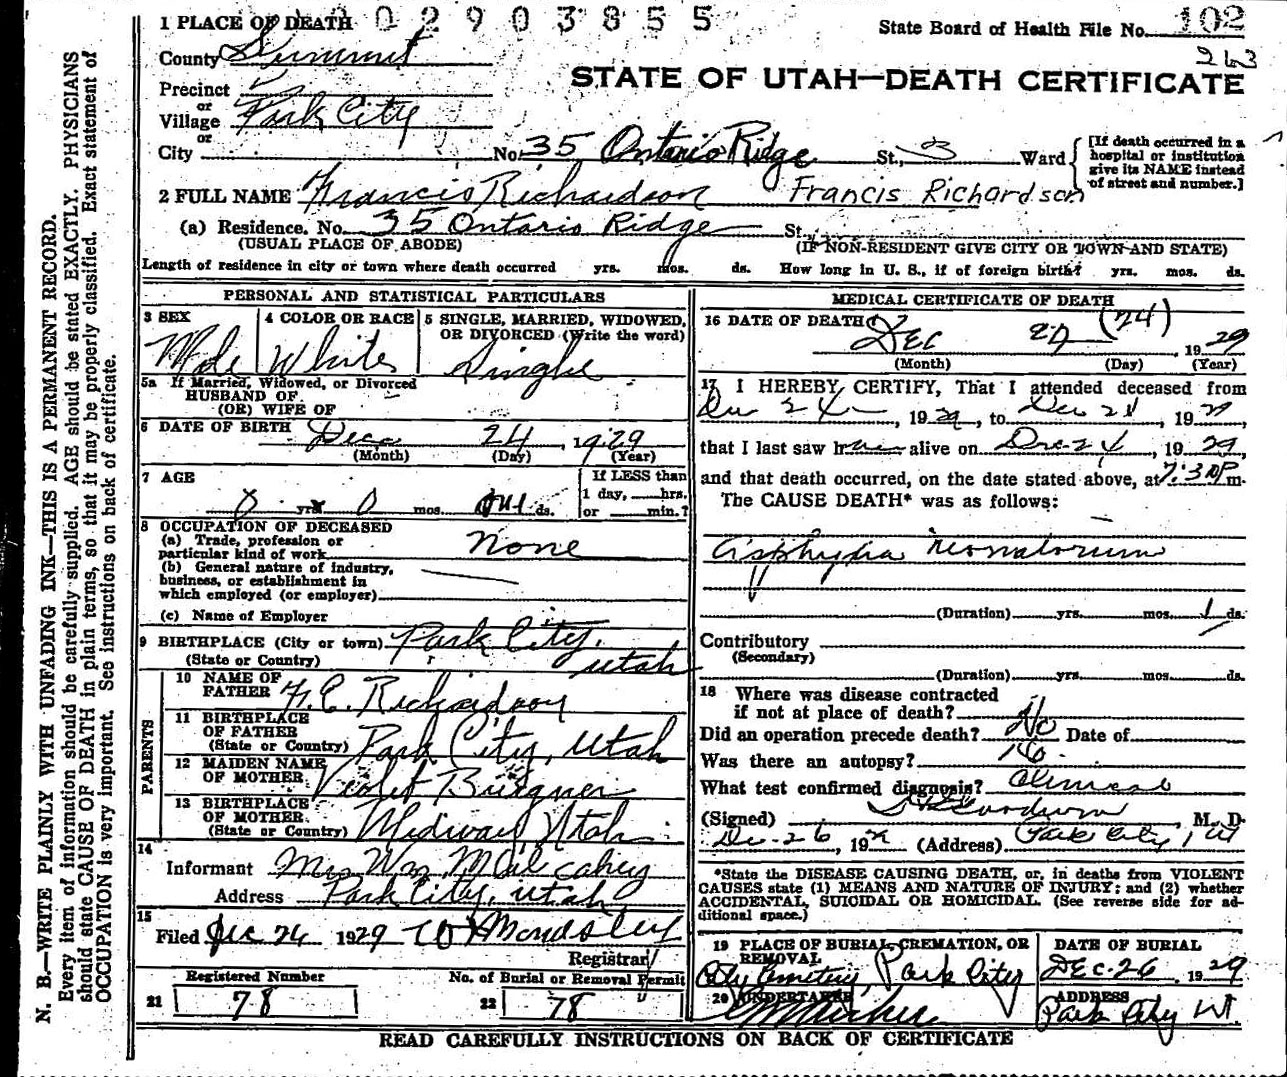 002903855
State Board of Health File No. 102
263
STATE OF UTAH—DEATH CERTIFICATE
1 PLACE OF DEATH
County Summit
Precinct
or
Village Park City
or
City No. 35 Ontario Ridge St., 3 Ward
[If death occurred in a hospital or institution give its NAME instead of street and number.]
2 FULL NAME Francis Richardson Francis Richardson
(a) Residence. No. 35 Ontario Ridge St.,
(USUAL PLACE OF ABODE) (IF NON-RESIDENT GIVE CITY OR TOWN AND STATE)
Length of residence in city or town where death occurred yrs. mos. ds. How long in U. S., if of foreign birth? yrs. mos. ds.
PERSONAL AND STATISTICAL PARTICULARS
3 SEX Male
4 COLOR OR RACE White
5 SINGLE, MARRIED, WIDOWED, OR DIVORCED (Write the word) Single
5a If Married, Widowed, or Divorced
HUSBAND OF
(OR) WIFE OF
6 DATE OF BIRTH Dec 24, 1929
(Month) (Day) (Year)
7 AGE
0 yrs 0 mos. ds.
If LESS than
1 day, hrs.
or min.?
8 OCCUPATION OF DECEASED
(a) Trade, profession or
particular kind of work None
(b) General nature of industry,
business, or establishment in
which employed (or employer)
(c) Name of Employer
9 BIRTHPLACE (City or town) Park City,
(State or Country) Utah
PARENTS
10 NAME OF
FATHER Richardson
11 BIRTHPLACE
OF FATHER
(State or Country) Park City, Utah
12 MAIDEN NAME
OF MOTHER Violet Burgner
13 BIRTHPLACE
OF MOTHER
(State or Country) Midway Utah
14
Informant Mrs Wm Mulcahey
Address Park City, Utah
15
Filed Dec 26 1929
Registrar
Registered Number
21 78
No. of Burial or Removal Permit
22 78
MEDICAL CERTIFICATE OF DEATH
16 DATE OF DEATH
Dec (24), 1929
(Month) (Day) (Year)
17 I HEREBY CERTIFY, That I attended deceased from
Dec 24, 1929, to Dec 24, 1929
that I last saw h alive on Dec 24, 1929,
and that death occurred, on the date stated above, at 7:30 P m.
The CAUSE DEATH* was as follows:
Asphyxia neonatorum
(Duration) yrs. mos. 1 ds.
Contributory
(Secondary)
(Duration) yrs. mos. ds.
18 Where was disease contracted
if not at place of death?
Did an operation precede death? No Date of
Was there an autopsy? No.
What test confirmed diagnosis? Clinical
(Signed) , M. D.
Dec. 26, 19 (Address) Park City Ut
*State the DISEASE CAUSING DEATH, or, in deaths from VIOLENT CAUSES state (1) MEANS AND NATURE OF INJURY; and (2) whether ACCIDENTAL, SUICIDAL OR HOMICIDAL. (See reverse side for additional space.)
19 PLACE OF BURIAL, CREMATION, OR REMOVAL
City Cemetery, Park City
DATE OF BURIAL
Dec. 26, 1929
20 UNDERTAKER
ADDRESS
Park City Ut.
READ CAREFULLY INSTRUCTIONS ON BACK OF CERTIFICATE
N. B.—WRITE PLAINLY WITH UNFADING INK—THIS IS A PERMANENT RECORD.
Every item of information should be carefully supplied. AGE should be stated EXACTLY. PHYSICIANS
should state CAUSE OF DEATH in plain terms, so that it may be properly classified. Exact statement of
OCCUPATION is very important. See instructions on back of certificate.